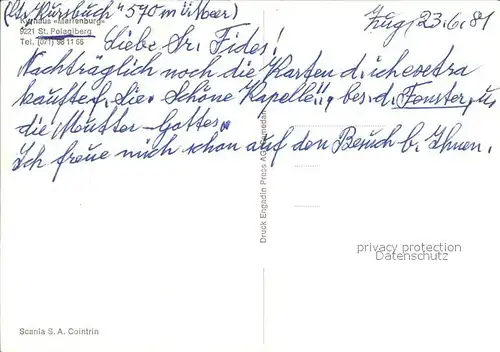 (lt. "Kursbuch" 570 m ü. Meer)
Kurhaus «Marienburg»
9221 St. Pelagiberg
Tel. (071) 98 11 66
Zug, 23.6.81
Liebe Sr. Fides!
Nachträglich noch die Karten d. ich extra
kaufte f. Sie. Schöne Kapelle!!, bes. d. Fenster, u.
die Mutter-Gottes.
Ich freue mich schon auf den Besuch b. Ihnen.
Druck Engadin Press AG Samedan
privacy protection
Datenschutz
Scania S. A. Cointrin